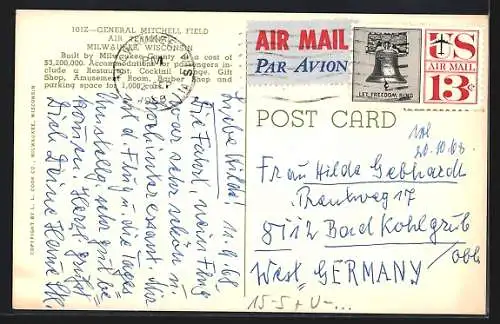 101Z—GENERAL MITCHELL FIELD
AIR TERMINAL
MILWAUKEE, WISCONSIN
Built by Milwaukee County at a cost of
$3,200,000. Accommodations for passengers in-
clude a Restaurant, Cocktail Lounge, Gift
Shop, Amusement Room, Barber Shop and
parking space for 1,000 cars.
COPYRIGHT BY L. L. COOK CO., MILWAUKEE, WISCONSIN
AIR MAIL
PAR AVION
LET FREEDOM RING
US
AIR MAIL
13¢
POST CARD
20.10.68
Frau Hilde Gebhardt
8112 Bad Kohlgrub
/Obb.
West GERMANY
Liebe Hilde! 11.9.68.
Die Fahrt, mein Flug
war sehr schön u.
hochinteressant. Nur
d. Flug u. die Tage
sehr gut be-
kommen. Herzl. grüßt
Dich Deine